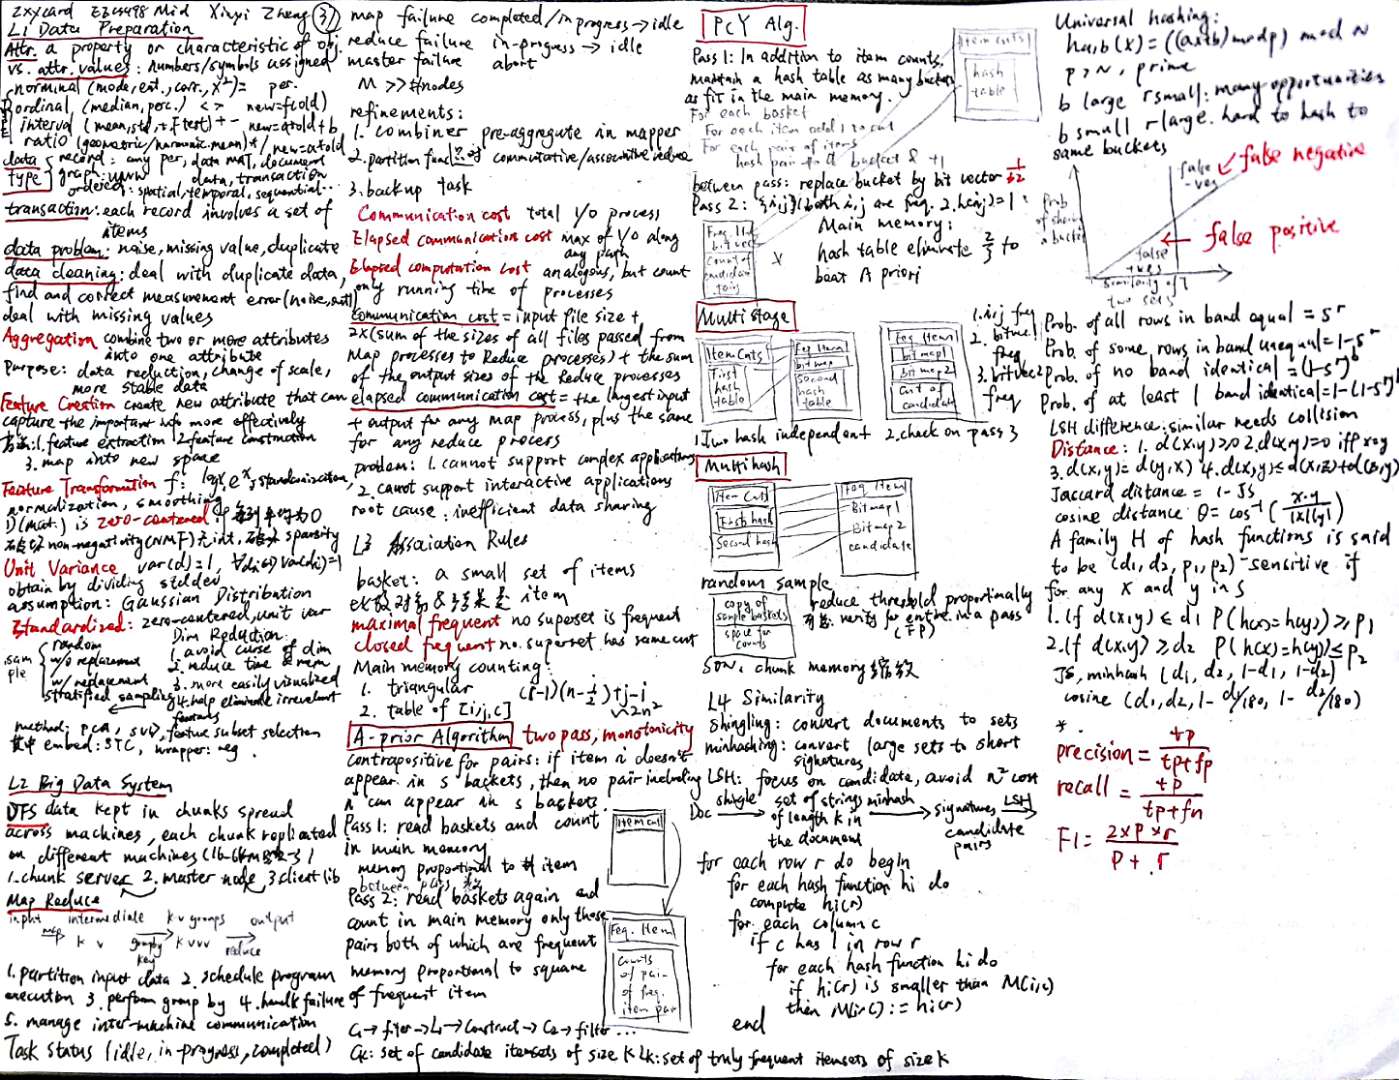 zxycard EECS498 Mid Xinyi Zheng ③
L1 Data Preparation
Attr. a property or characteristic of obj.
vs. attr. values: numbers/symbols assigned
norminal (mode, ent., corr., χ²) = per.
ordinal (median, perc.) < > new=f(old)
interval (mean, std, t F test) + - new=a*old+b
ratio (geometric/harmonic mean) * / new=a*old
data type
record: any per, data mat, document data, transaction
graph: www
ordered: spatial, temporal, sequential...
transaction: each record involves a set of
items
data problem: noise, missing value, duplicate
data cleaning: deal with duplicate data,
find and correct measurement error (noise, )
deal with missing values
Aggregation combine two or more attributes
into one attribute
Purpose: data reduction, change of scale,
more stable data
Feature Creation create new attribute that can
capture the important info more effectively
方法: 1. feature extraction 2 feature construction
3. map into new space
Feature Transformation f: log x, e^x, standardization,
normalization, smoothing
D(mat.) is zero-centered if 每列平均为0
破坏 non-negativity (NMF) sparsity
Unit Variance var(d)=1,
obtain by dividing stddev
assumption: Gaussian Distribution
Standardized: zero-centered, unit var
sample
random
w/o replacement
w/ replacement
stratified sampling
Dim Reduction
1. avoid curse of dim
2. reduce time & mem
3. more easily visualized
4. help eliminate irrelevant
features
method: PCA, SVD, feature subset selection
其中 embed: DTC, wrapper: reg.
L2 Big Data System
DFS data kept in chunks spread
across machines, each chunk replicated
on different machines (16-64MB 2-3)
1. chunk server 2. master node 3 client lib
Map Reduce
input intermediate kv groups output
map k v group by key k vvv reduce
1. partition input data 2. schedule program
execution 3. perform group by 4. handle failure
5. manage inter-machine communication
Task status (idle, in-progress, completed)
map failure completed/in progress → idle
reduce failure in-progress → idle
master failure abort
M >> #nodes
refinements:
1. combiner pre-aggregate in mapper
2. partition func commutative/associative reduce
3. backup task
Communication cost total I/O process
Elapsed communication cost max of I/O along
any path
Elapsed computation cost analogous, but count
only running time of processes
Communication cost = input file size +
2x(sum of the sizes of all files passed from
Map processes to Reduce processes) + the sum
of the output sizes of the Reduce processes
elapsed communication cost = the largest input
+ output for any map process, plus the same
for any reduce process
problem: 1. cannot support complex applications
2. cannot support interactive applications
root cause: inefficient data sharing
L3 Association Rules
basket: a small set of items
item
maximal frequent no superset is frequent
closed frequent no superset has same cnt
Main memory counting:
1. triangular (i-1)(n-i/2)+j-i
2. table of [i,j,c] ~2n²
A-prior Algorithm two pass, monotonicity
Contrapositive for pairs: if item i doesn't
appear in s baskets, then no pair including
i can appear in s baskets.
Pass 1: read baskets and count
in main memory
memory proportional to # item
between pass
Pass 2: read baskets again and
count in main memory only those
pairs both of which are frequent
memory proportional to square
of frequent item
Item cnt
Freq. Item
counts of pair of freq. item pair
C₁ → filter → L₁ → Construct → C₂ → filter...
Ck: set of candidate itemsets of size k Lk: set of truly frequent itemsets of size k
PCY Alg.
Pass 1: In addition to item counts,
maintain a hash table as many buckets
as fit in the main memory.
For each basket
For each item add 1 to cnt
For each pair of items
hash pair to a bucket & +1
between pass: replace bucket by bit vector 1/32
Pass 2: {i,j} 1. both i,j are freq. 2. h(i,j)=1
Item cnts
hash table
Freq. Item
bit vec
Count of candidate pairs
Main memory:
hash table eliminate 2/3 to
beat A priori
Multistage
Item Cnts
First hash table
Freq. Item
bitmap
Second hash table
Freq Item
bitmap1
bitmap2
Cnt of candidate
1. i,j freq
2. bitvec1 freq
3. bitvec2 freq
1. Two hash independent 2. check on pass 3
Multihash
Item Cnts
First hash
Second hash
Freq Item
Bitmap 1
Bitmap 2
candidate
random sample
copy of sample baskets
space for counts
reduce threshold proportionally
可选: verify for entire in a pass
(FP)
SON: chunk memory
L4 Similarity
shingling: convert documents to sets
minhashing: convert large sets to short
signatures
LSH: focus on candidate, avoid n² cost
Doc shingle → set of strings of length k in the document minhash → signatures LSH → candidate pairs
for each row r do begin
for each hash function hi do
compute hi(r)
for each column c
if c has 1 in row r
for each hash function hi do
if hi(r) is smaller than M(i,c)
then M(i,c) := hi(r)
end
Universal hashing:
ha,b(x) = ((ax+b) mod p) mod N
p>N, prime
b large r small: many opportunities
b small r large. hard to hash to
same buckets
false -ves
false negative
false positive
Prob of sharing a bucket
false +ves
Similarity of two sets
Prob. of all rows in band equal = s^r
Prob. of some rows in band unequal = 1-s^r
Prob. of no band identical = (1-s^r)^b
Prob. of at least 1 band identical = 1-(1-s^r)^b
LSH difference: similar needs collision
Distance: 1. d(x,y)≥0 2. d(x,y)=0 iff x=y
3. d(x,y)=d(y,x) 4. d(x,y)≤d(x,z)+d(z,y)
Jaccard distance = 1-JS
cosine distance θ = cos⁻¹(x·y/|x||y|)
A family H of hash functions is said
to be (d1, d2, p1, p2)-sensitive if
for any x and y in S
1. If d(x,y) ≤ d1 P(h(x)=h(y)) ≥ p1
2. If d(x,y) ≥ d2 P(h(x)=h(y)) ≤ p2
JS, minhash (d1, d2, 1-d1, 1-d2)
cosine (d1, d2, 1-d1/180, 1-d2/180)
*
precision = tp/tp+fp
recall = tp/tp+fn
F1 = 2×p×r/p+r